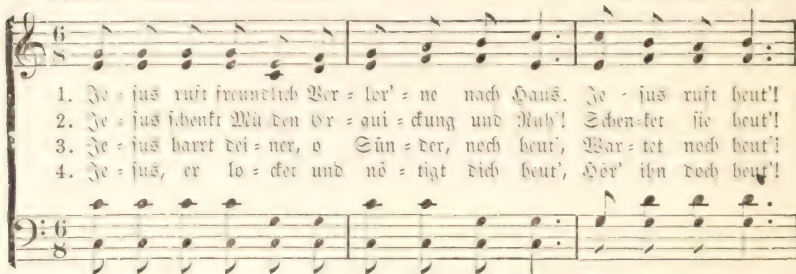 6
8
1. Je = sus ruft freundlich Ver = lor' = ne nach Haus. Je = sus ruft heut'!
2. Je = sus schenkt Mü den Er = qui = ckung und Ruh'! Schen=ket sie heut'!
3. Je = sus harrt dei = ner, o Sün = der, noch heut', War = tet noch heut'!
4. Je = sus, er lo = cket und nö = tigt dich heut', Hör' ihn doch heut'!
6
8